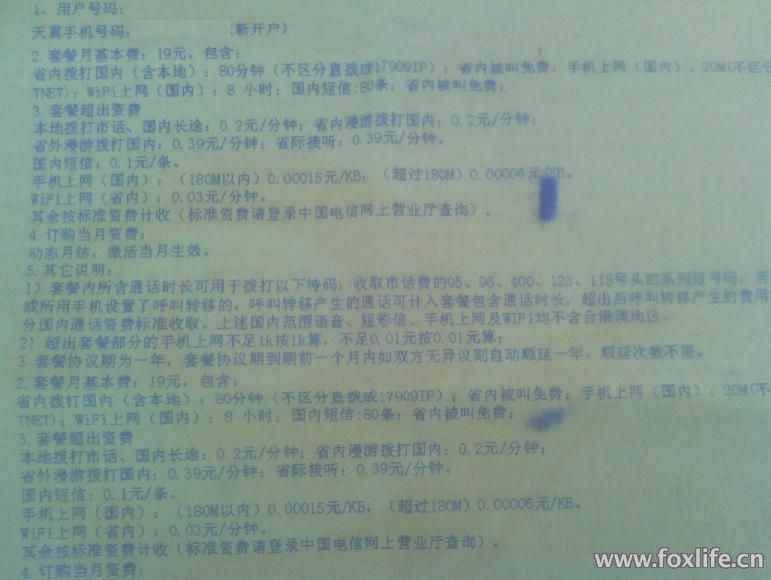 1. 用户号码:
天翼手机号码: (新开户)
2. 套餐月基本费: 19元, 包含:
省内拨打国内 (含本地) : 80分钟 (不区分直拨或17909IP) ; 省内被叫免费; 手机上网 (国内) : 20M(不区分
TNET); WiFi上网 (国内) : 8 小时; 国内短信:80条; 省内被叫免费;
3. 套餐超出资费
本地拨打市话、国内长途: 0.2元/分钟; 省内漫游拨打国内: 0.2元/分钟;
省外漫游拨打国内: 0.39元/分钟; 省际接听: 0.39元/分钟。
国内短信: 0.1元/条。
手机上网 (国内) : (180M以内) 0.00015元/KB, (超过180M) 0.00006元/KB。
WiFi上网 (省内) : 0.03元/分钟。
其余按标准资费计收 (标准资费请登录中国电信网上营业厅查询) 。
4. 订购当月资费:
动态月结, 激活当月生效。
5. 其它说明:
1) 套餐内所含通话时长可用于拨打以下特码: 收取市话费的95、96、400、123、118号头的系列短号码; 若
或所用手机设置了呼叫转移的, 呼叫转移产生的通话可计入套餐包含通话时长, 超出后呼叫转移产生的费用
分国内通话资费标准收取。上述国内范围语音、短彩信、手机上网及WIFI均不含台港澳地区。
2) 超出套餐部分的手机上网不足1k按1k算, 不足0.01元按0.01元算;
3 套餐协议期为一年, 套餐协议期到期前一个月内如双方无异议则自动顺延一年, 顺延次数不限。
2. 套餐月基本费: 19元, 包含:
省内拨打国内 (含本地) : 80分钟 (不区分直拨或17909IP) ; 省内被叫免费; 手机上网 (国内) : 20M(不
TNET); WiFi上网 (国内) : 8 小时; 国内短信:80条; 省内被叫免费;
3. 套餐超出资费
本地拨打市话、国内长途: 0.2元/分钟; 省内漫游拨打国内: 0.2元/分钟;
省外漫游拨打国内: 0.39元/分钟; 省际接听: 0.39元/分钟。
国内短信: 0.1元/条。
手机上网 (国内) : (180M以内) 0.00015元/KB, (超过180M) 0.00006元/KB。
WiFi上网 (省内) : 0.03元/分钟。
其余按标准资费计收 (标准资费请登录中国电信网上营业厅查询) 。
4. 订购当月资费:
www.foxlife.cn